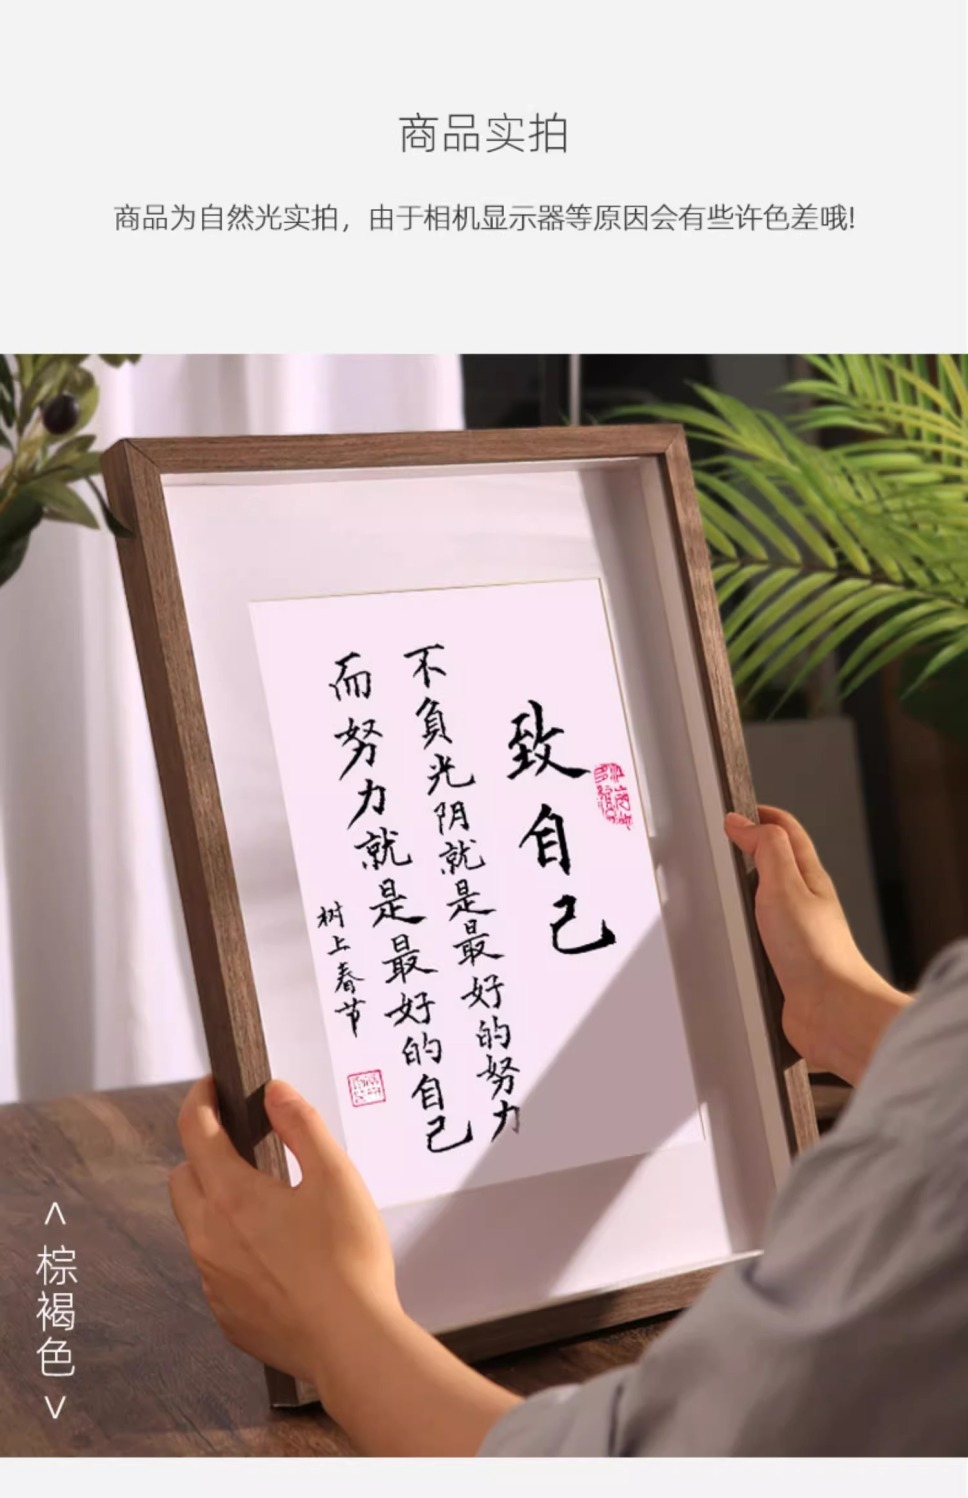 商品实拍
商品为自然光实拍，由于相机显示器等原因会有些许色差哦!
致自己
不負光阴就是最好的努力
而努力就是最好的自己
树上春节
<棕褐色>